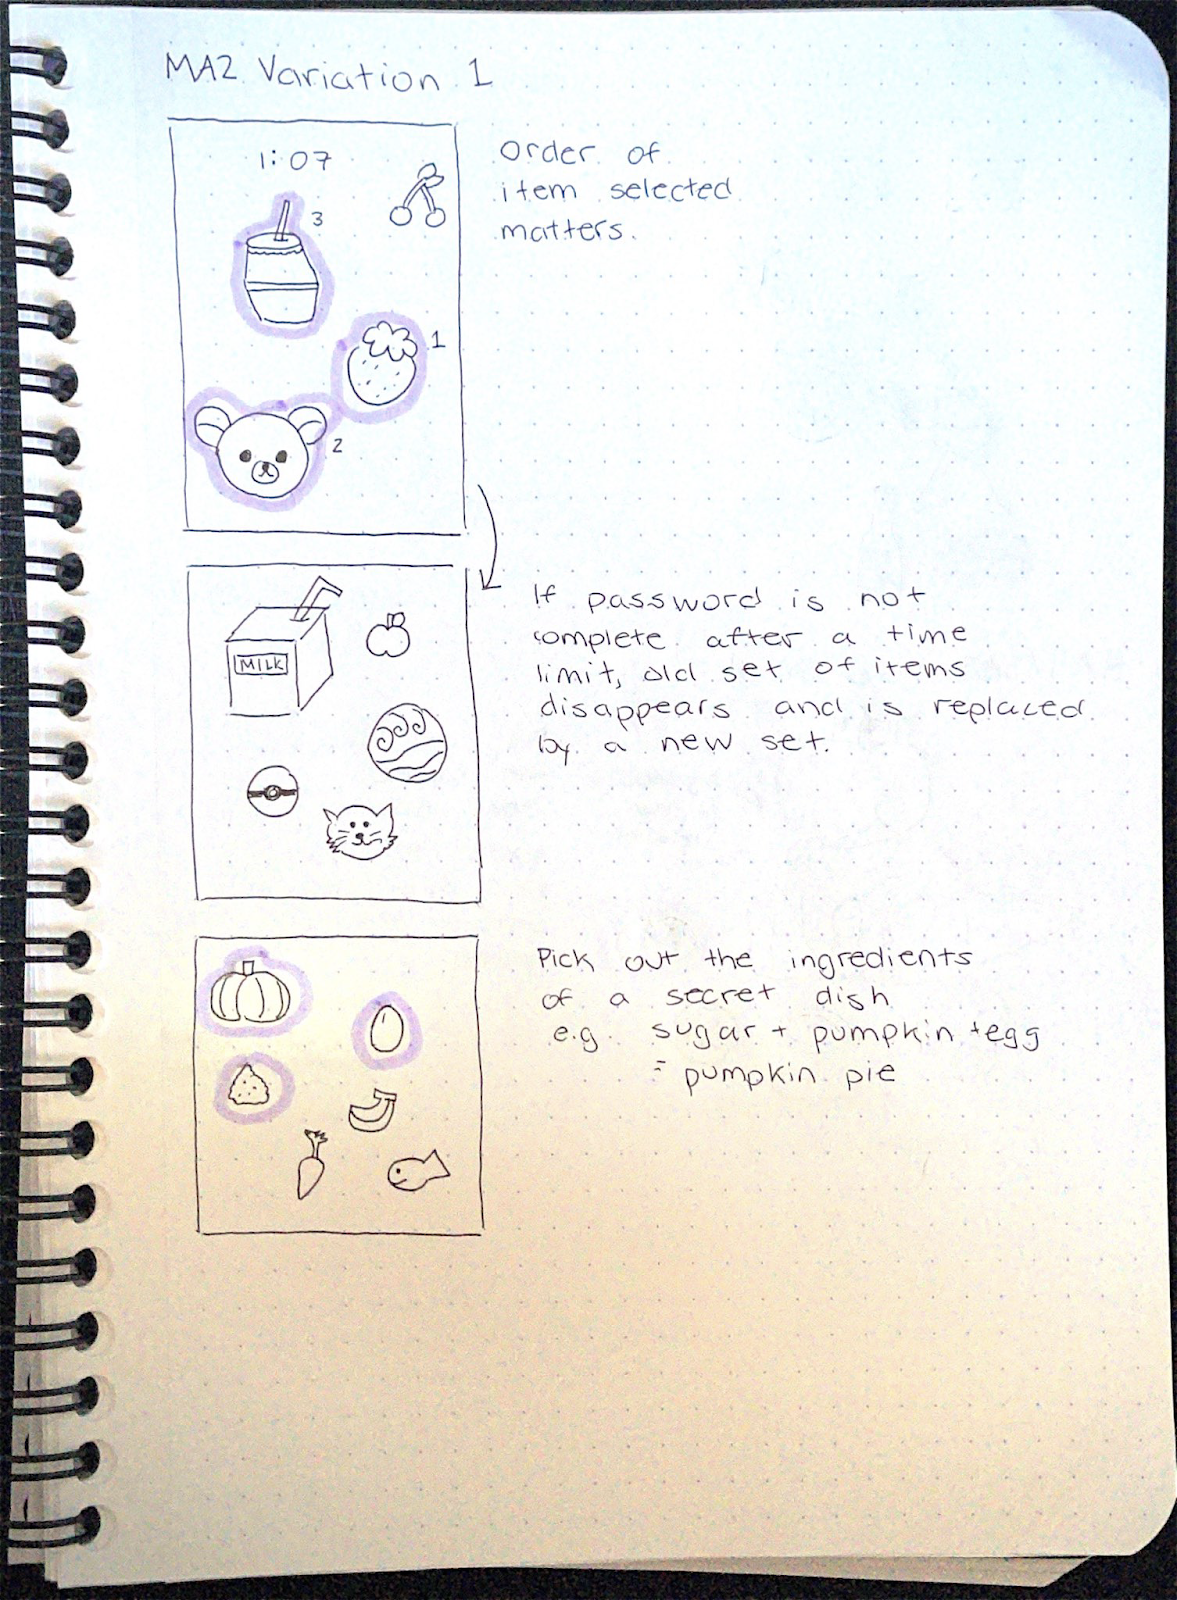 MA2 Variation 1
1:07
3
1
2
Order of
item selected
matters.
MILK
If password is not
complete after a time
limit, old set of items
disappears and is replaced
by a new set.
Pick out the ingredients
of a secret dish
e.g. sugar + pumpkin + egg
= pumpkin pie